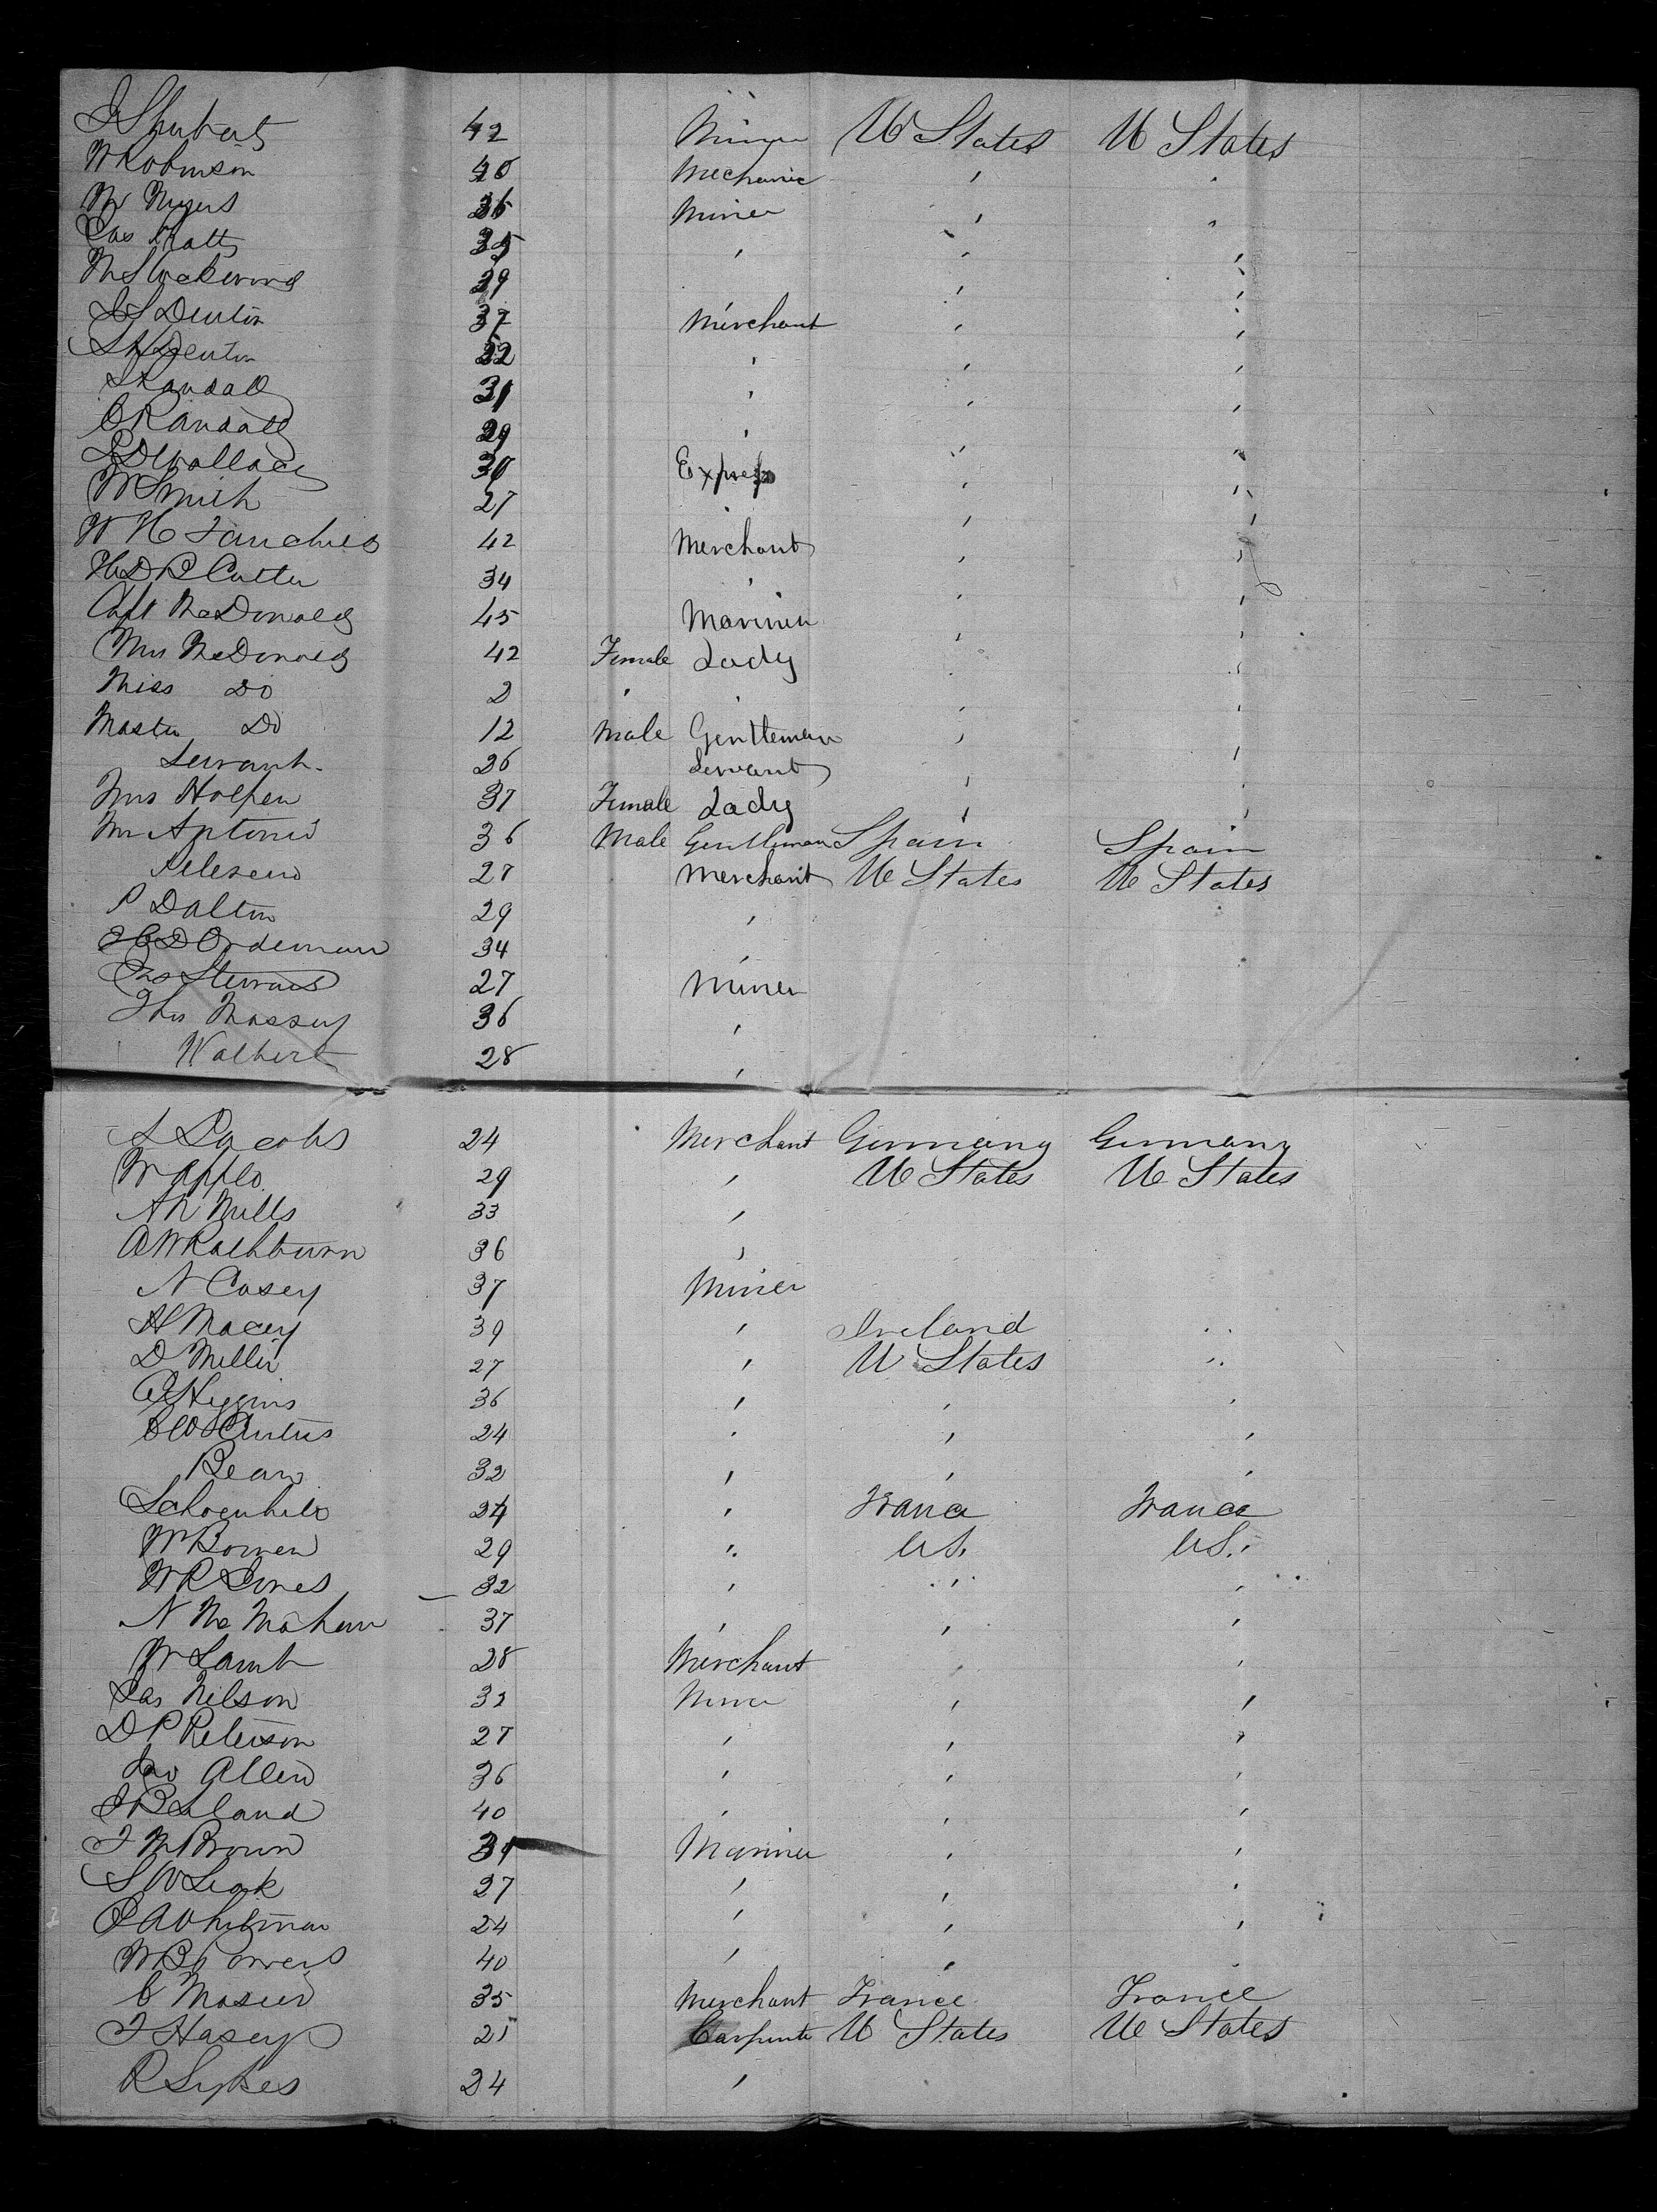 J Shubert 42 Miner U States U States
W Robinson 40 Mechanic " "
M Myers 36 Miner " "
Jas Pratt 35 " " "
29 " "
J S Denton 37 Merchant " "
S H Denton 32 " " "
S Randall 31 " " "
O Randall 29 " " "
Wallace 30 Express " "
W Smith 27 " "
W H 42 Merchant " "
H D B Cutter 34 " " "
Capt McDonald 45 Mariner " "
Mrs McDonald 42 Female Lady " "
Miss Do 2 " " " "
Master Do 12 Male Gentleman "
Servant 26 Servant "
Mrs Holpen 37 Female Lady " "
Mr Antonio 36 Male Gentleman Spain Spain
27 Merchant U States U States
P Dalton 29 "
Ordeman 34 "
Stevens 27 Miner
Thos Massey 36 "
Walbert 28 "
A Jacobs 24 Merchant Germany Germany
W Apple 29 " U States U States
A N Mills 33 "
A W Rathburn 36 "
N Casey 37 Miner
H Macey 39 " Ireland "
D Miller 27 " U States "
Higgins 36 " " "
24 " " "
Bean 32 " " "
24 " France France
W Bowen 29 " U S. U S.
W R Jones 32 " " "
N McMahan 37 " " "
W Lamb 28 Merchant " "
Jas Nelson 32 Miner " "
D P Peterson 27 " " "
Allen 36 " " "
J B Leland 40 " " "
J M Brown 39 Mariner " "
S W Leak 27 " " "
Whitman 24 " " "
W B 40 " " "
C Masier 35 Merchant France France
J Hasey 21 Carpenter U States U States
R Sykes 24 "